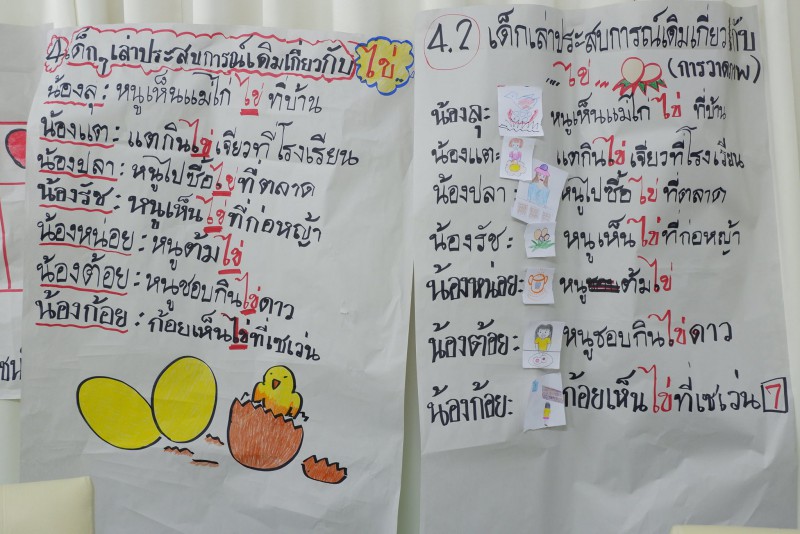 4. เด็กๆ เล่าประสบการณ์เดิมเกี่ยวกับ ไข่
น้องลุ : หนูเห็นแม่ไก่ ไข่ ที่บ้าน
น้องแตง : แตกินไข่เจียวที่โรงเรียน
น้องปลา : หนูไปซื้อไข่ที่ตลาด
น้องรัช : หนูเห็นไข่ที่ก่อหญ้า
น้องหนอย : หนูต้มไข่
น้องต้อย : หนูชอบกินไข่ดาว
น้องก้อย : ก้อยเห็นไข่ที่เซเว่น
4.2 เด็กเล่าประสบการณ์เดิมเกี่ยวกับ
ไข่
(การวาดภาพ)
น้องลุ : หนูเห็นแม่ไก่ ไข่ ที่บ้าน
น้องแตะ : แตกินไข่เจียวที่โรงเรียน
น้องปลา : หนูไปซื้อไข่ที่ตลาด
น้องรัช : หนูเห็นไข่ที่ก่อหญ้า
น้องหน่อย : หนู ต้มไข่
น้องต้อย : หนูชอบกินไข่ดาว
น้องก้อย : ก้อยเห็นไข่ที่เซเว่น 7